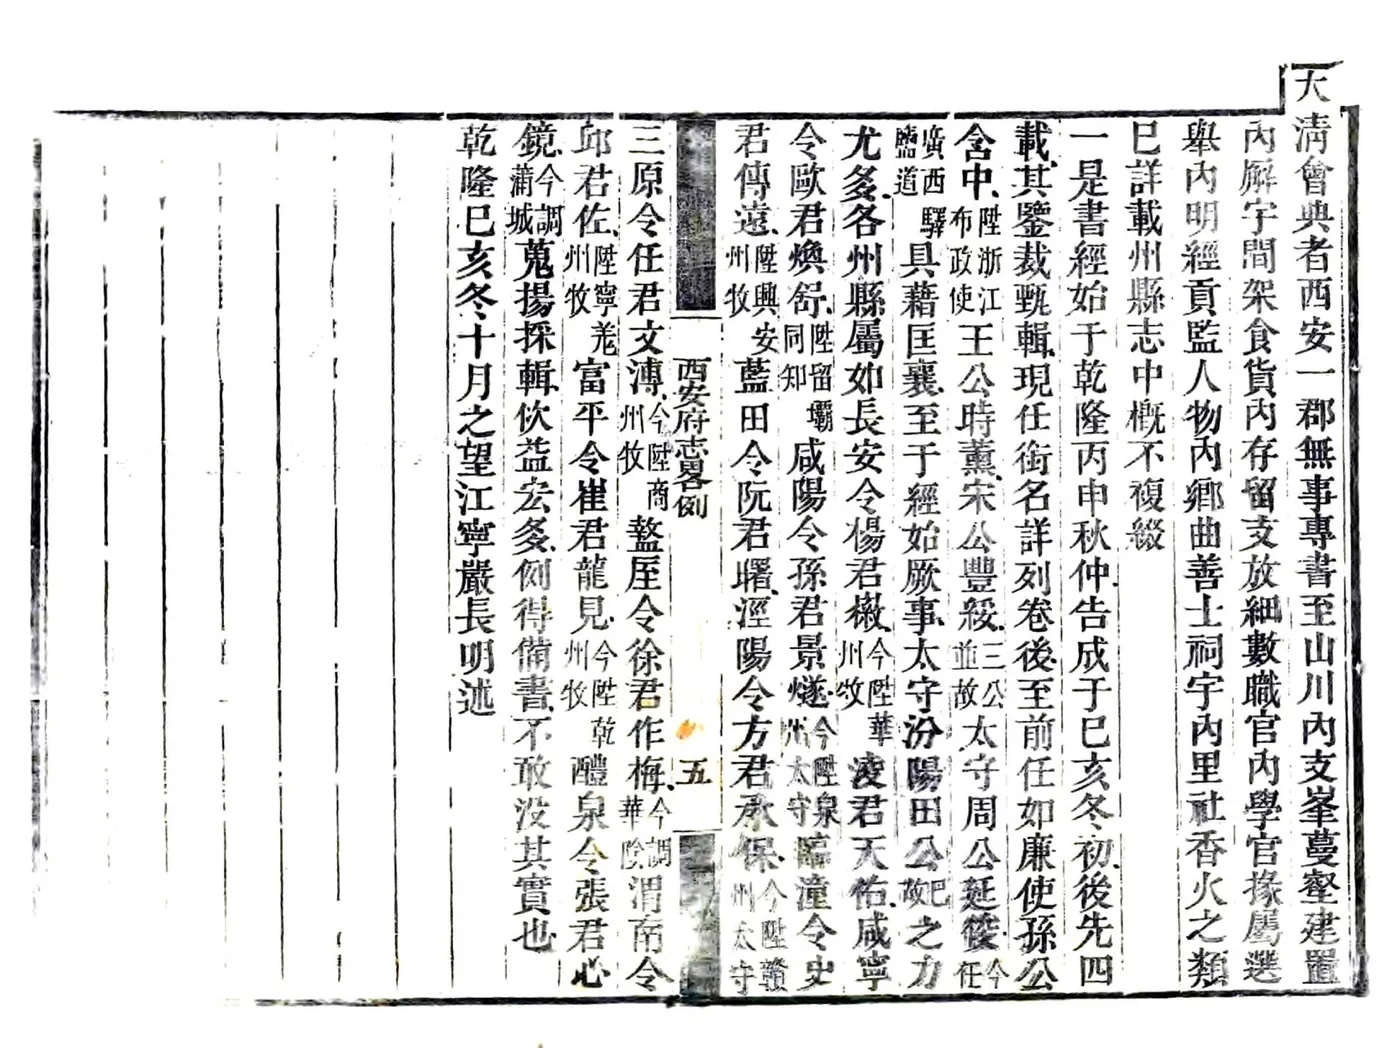 大
清會典者西安一郡無事專書至山川內支峯蔓壑建置
內廨宇間架食貨內存留支放細數職官內學官掾屬選
舉內明經貢監人物內鄉曲善士祠宇內里社香火之類
已詳載州縣志中槪不複綴
一是書經始于乾隆丙申秋仲告成于巳亥冬初後先四
載其鑒裁甄輯現任銜名詳列卷後至前任如廉使孫公
含中陞浙江布政使王公時薰宋公豐綏三公並故太守周公延俊今任
廣西驛鹽道具藉匡襄至于經始厥事太守汾陽田公巳故之力
尤多各州縣屬如長安令楊君橄今陞華州牧凌君天佑咸寧
令歐君煥舒陞留壩同知咸陽令孫君景燧今陞泉州太守臨潼令史
君傳遠陞興安州牧藍田令阮君曙涇陽令方君承保今陞贛州太守
西安府志畧例
五
三原令任君文溥今陞商州牧盩厔令徐君作梅今調華陰渭南令
邱君佐陞寧羌州牧富平令崔君龍見今陞乾州牧醴泉令張君心
鏡今調蒲城蒐揚採輯佽益宏多例得備書不敢没其實也
乾隆巳亥冬十月之望江寧嚴長明述